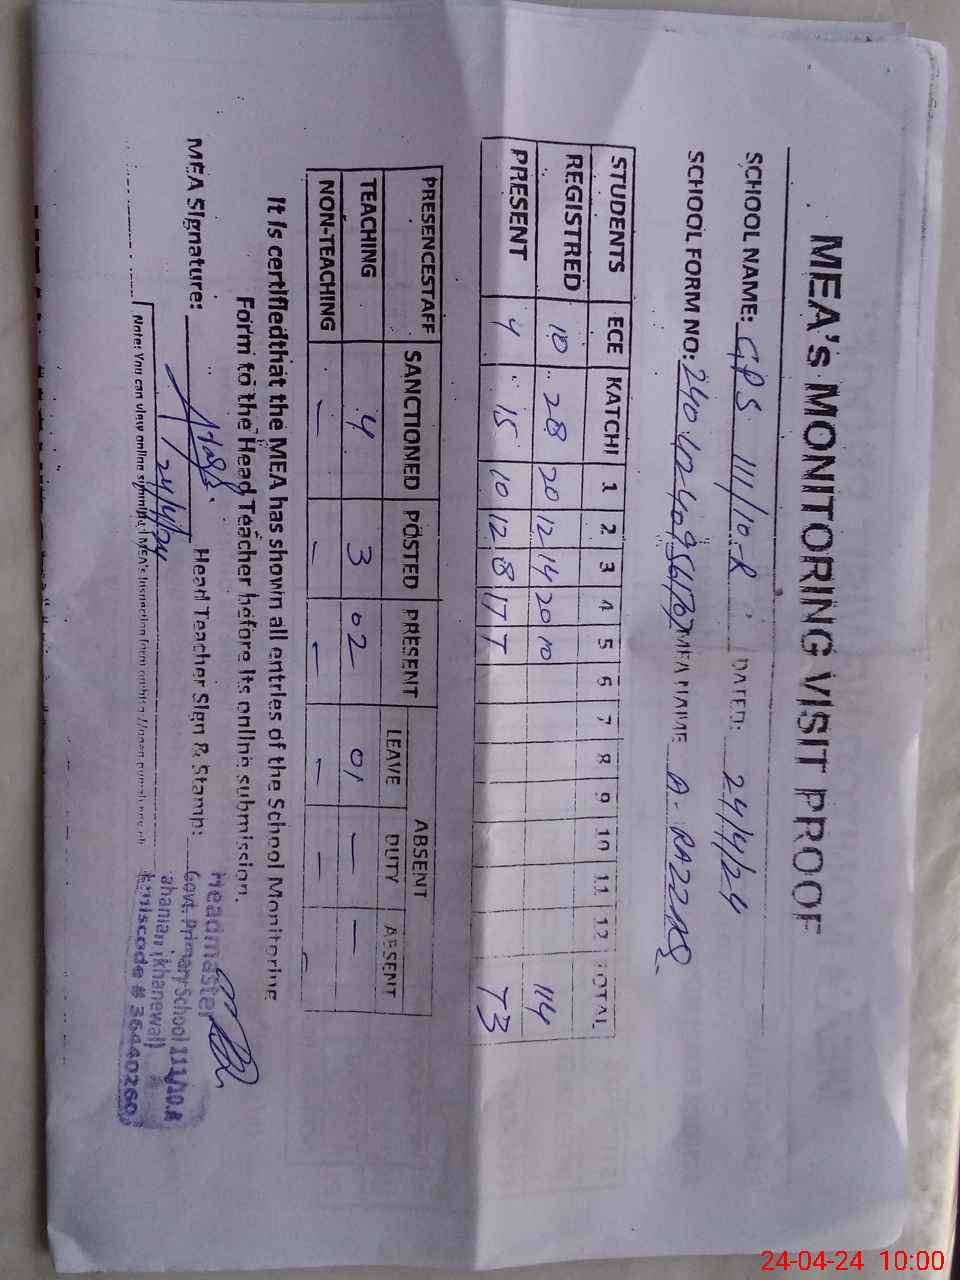 MEA's MONITORING VISIT PROOF
SCHOOL NAME: GPS 111/10-R DATED: 24/4/24
SCHOOL FORM NO: MEA NAME A. RAZZAQ
STUDENTS ECE KATCHI 1 2 3 4 5 6 7 8 9 10 11 12 TOTAL
REGISTRED 10 28 20 12 14 20 10 114
PRESENT 4 15 10 12 8 17 7 73
PRESENCESTAFF SANCTIONED POSTED PRESENT ABSENT
LEAVE DUTY ABSENT
TEACHING 4 3 02 01 — —
NON-TEACHING — — — — — —
It is certifiedthat the MEA has shown all entries of the School Monitoring
Form to the Head Teacher before its online submission.
MEA Signature: Head Teacher Sign & Stamp:
24/4/24
Headmaster
Govt. Primary School 111/10.R
ahanian (khanewal)
Emiscode # 36440260
Note: You can view online submitted MEA's Inspection form on
24-04-24 10:00